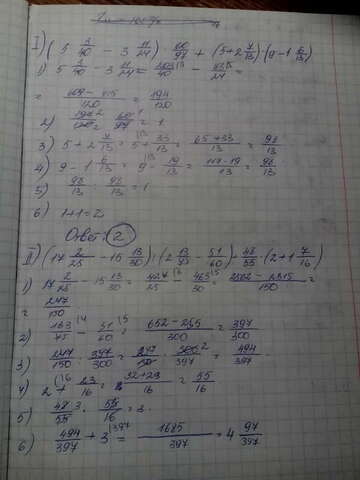 I) (5 3/40 - 3 11/24) · 60/97 + (5+2 7/13) : (9-1 6/13)
1) 5 3/40 - 3 11/24 = 203/40 - 83/24 =
= 609 - 415 / 120 = 194/120
2) 194/120 · 60/97 = 1
3) 5 + 2 7/13 = 5 + 33/13 = 65+33/13 = 98/13
4) 9 - 1 6/13 = 9 - 19/13 = 117-19/13 = 98/13
5) 98/13 : 98/13 = 1
6) 1+1=2
Ответ: 2
II) (17 2/25 - 15 13/30) : (2 13/75 - 51/60) + 48/55 · (2+1 7/16)
1) 17 2/25 - 15 13/30 = 427/25 - 463/30 = 2562 - 2315 / 150 =
= 247/150
2) 163/75 - 51/60 = 652 - 255 / 300 = 397/300
3) 247/150 : 397/300 = 247/150 · 300/397 = 494/397
4) 2 + 23/16 = 32+23/16 = 55/16
5) 48/55 · 55/16 = 3
6) 494/397 + 3 = 1685/397 = 4 97/397